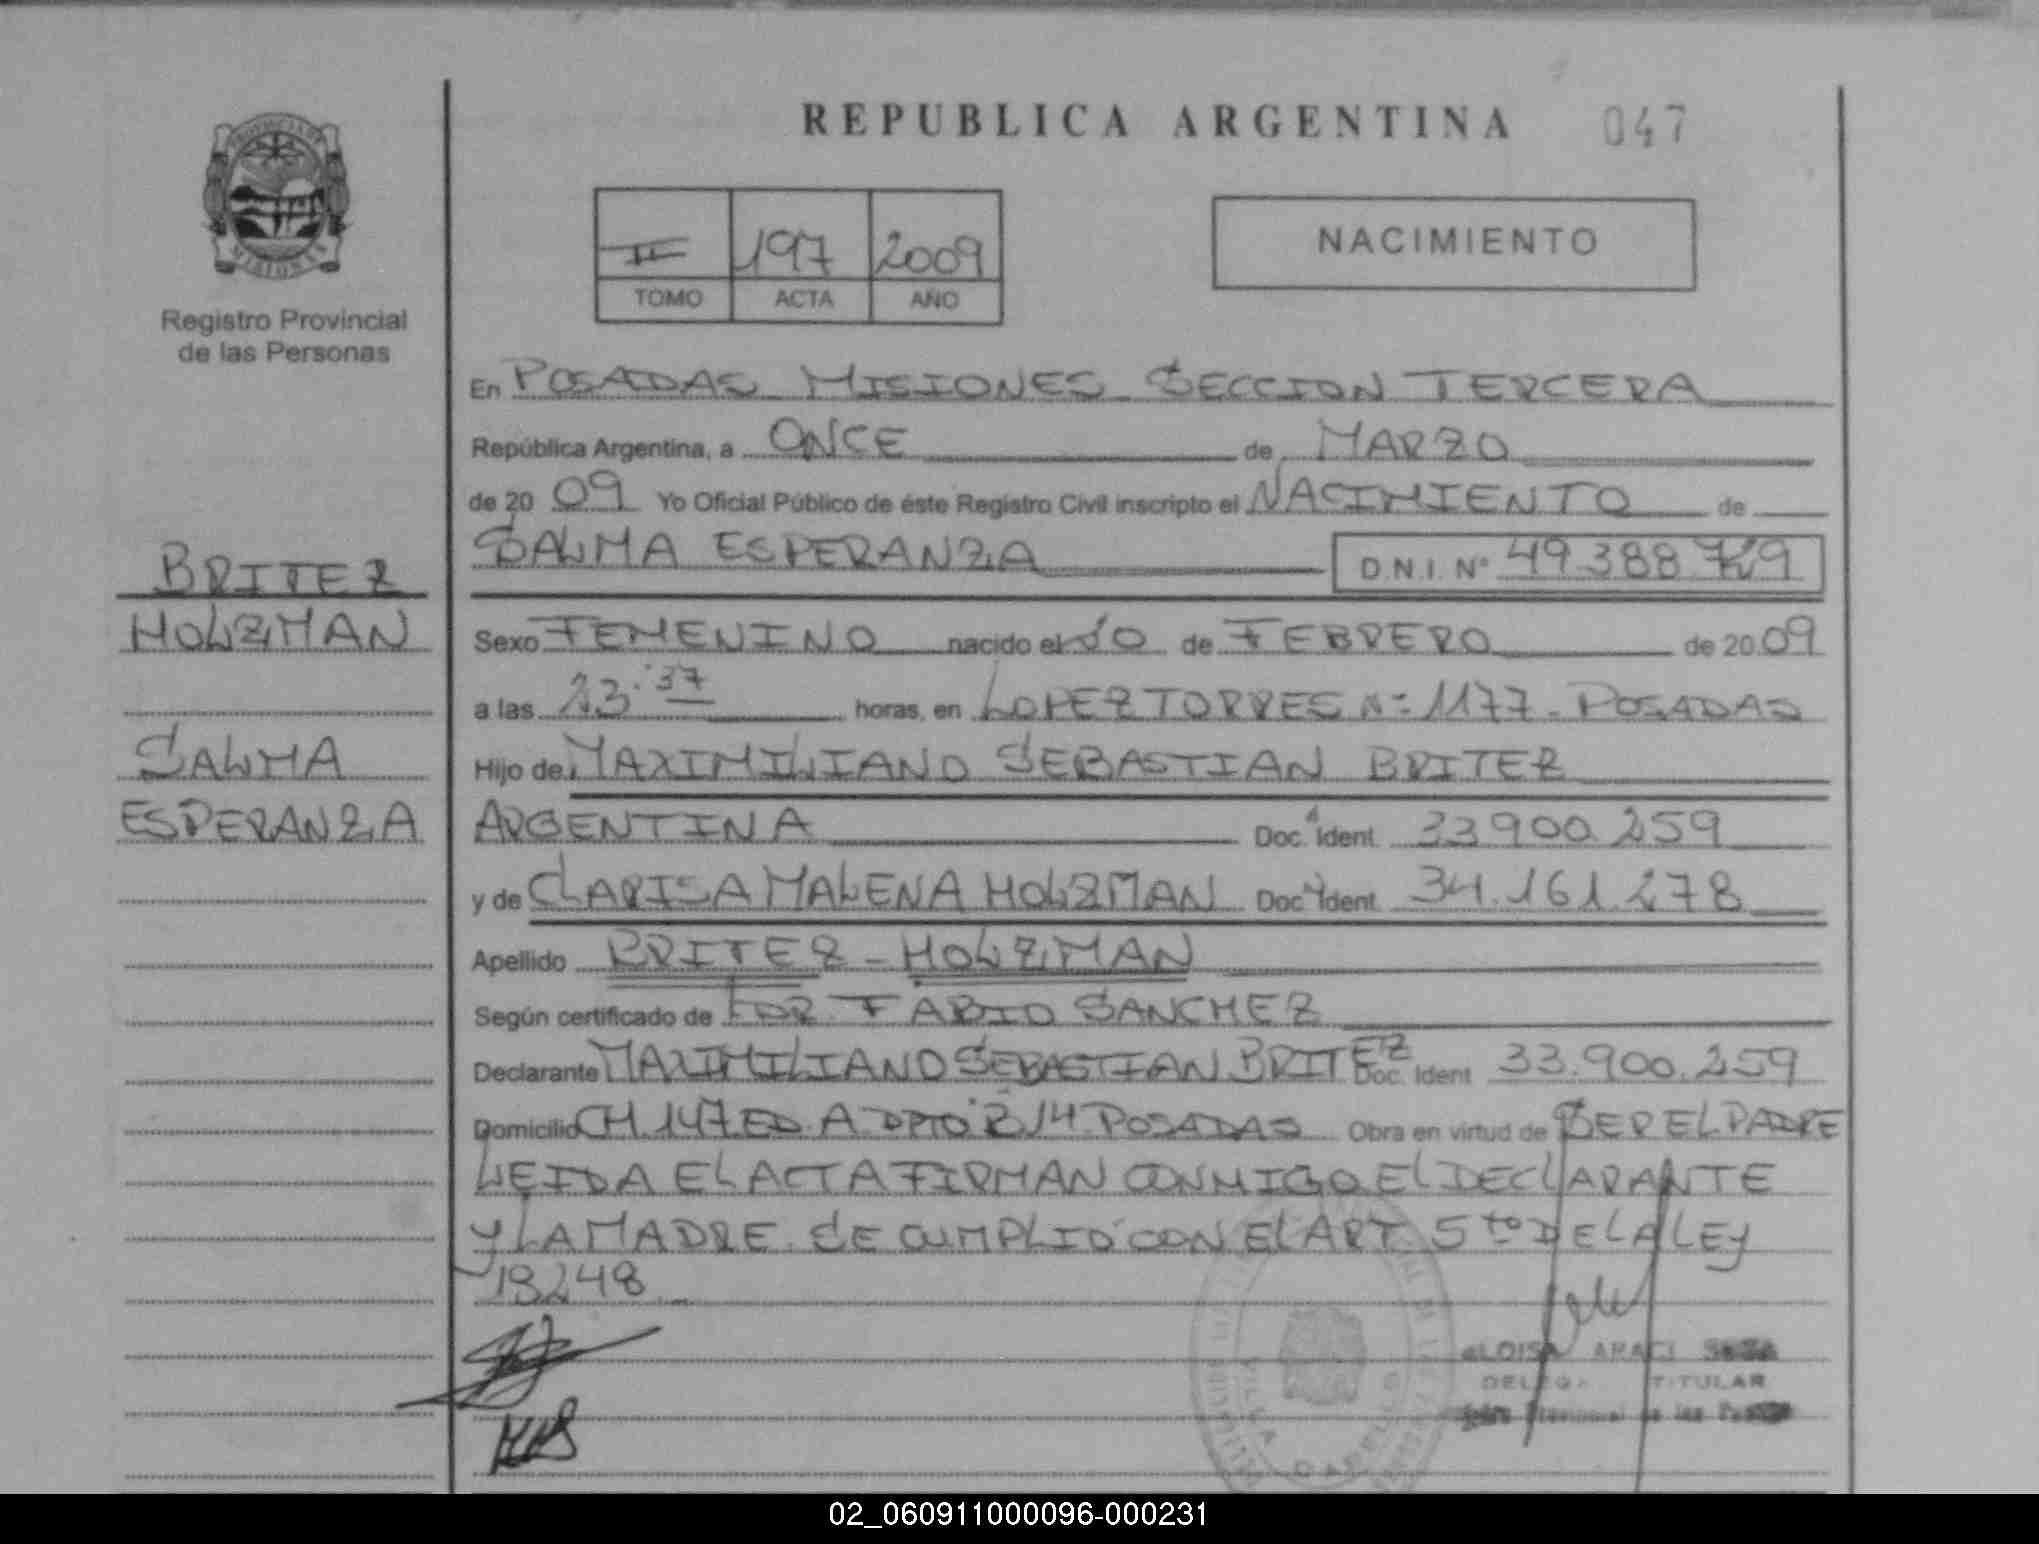 REPUBLICA ARGENTINA 047
PROVINCIA DE
MISIONES
Registro Provincial
de las Personas
II 197 2009
TOMO ACTA AÑO
NACIMIENTO
En POSADAS MISIONES SECCION TERCERA
República Argentina, a ONCE de MARZO
de 20 09 Yo Oficial Público de éste Registro Civil inscripto el NACIMIENTO de
SALMA ESPERANZA D.N.I. Nº 49.388.729
BRITEZ
HOLZMAN
SALMA
ESPERANZA
Sexo FEMENINO nacido el 10 de FEBRERO de 20 09
a las 23:37 horas, en LOPEZ TORRES Nº 1177 - POSADAS
Hijo de MAXIMILIANO SEBASTIAN BRITEZ
ARGENTINA Doc. Ident. 33900.259
y de CLARISA MALENA HOLZMAN Doc. Ident. 34.161.278
Apellido BRITEZ - HOLZMAN
Según certificado de DR. FABIO SANCHEZ
Declarante MAXIMILIANO SEBASTIAN BRITEZ Doc. Ident. 33.900.259
Domicilio CH 147 ED. A DPTO B 14 POSADAS Obra en virtud de SER EL PADRE
LEIDA EL ACTA FIRMAN CONMIGO EL DECLARANTE
Y LA MADRE. SE CUMPLIO CON EL ART. 5to DE LA LEY
18248
ARACI
TITULAR
02_060911000096-000231